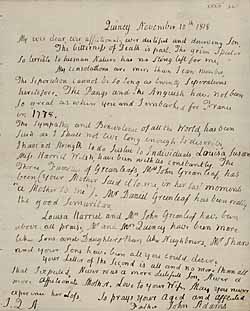 Quincy November 10th 1818
My ever dear, ever affectionate, ever dutiful and deserving Son
The bitterness of Death is past. The grim Spector
so terrible to human Nature has no sting left for me.
My consolations are more than I can number.
The Separation cannot be so long as twenty Separations
heretofore. The Pangs and the Anguish have not been
so great as when you and I embarked for France
in 1778.
The Sympathy and Benevolence of all the World has been
Such as I shall not live long enough to describe.
I have not Strength to do Justice to Individuals. Louisa Susan
Miss Harriet Welsh, have been with me constantly. The
Three Families of Greenleafs, Mrs John Greenleaf, has
been (your Mother said it to me in her last moments)
"a Mother to me". Mr Daniel Greenleaf has been really
the good Samaritan.
Louisa Harriet and Mrs John Greenleaf have been
above all praise. Mr and Mrs Quincy have been more
like Sons and Daughters than like Neighbours. Mr Shaw
and your Sons have been all you could desire.
Your Letter of the Second is all and no more than all
that I expected. Never was a more dutiful Son. Never a
more Affectionate Mother. Love to your Wife. May you never
experience her Loss. So prays your Aged and afflicted
J. Q. A. Father John Adams